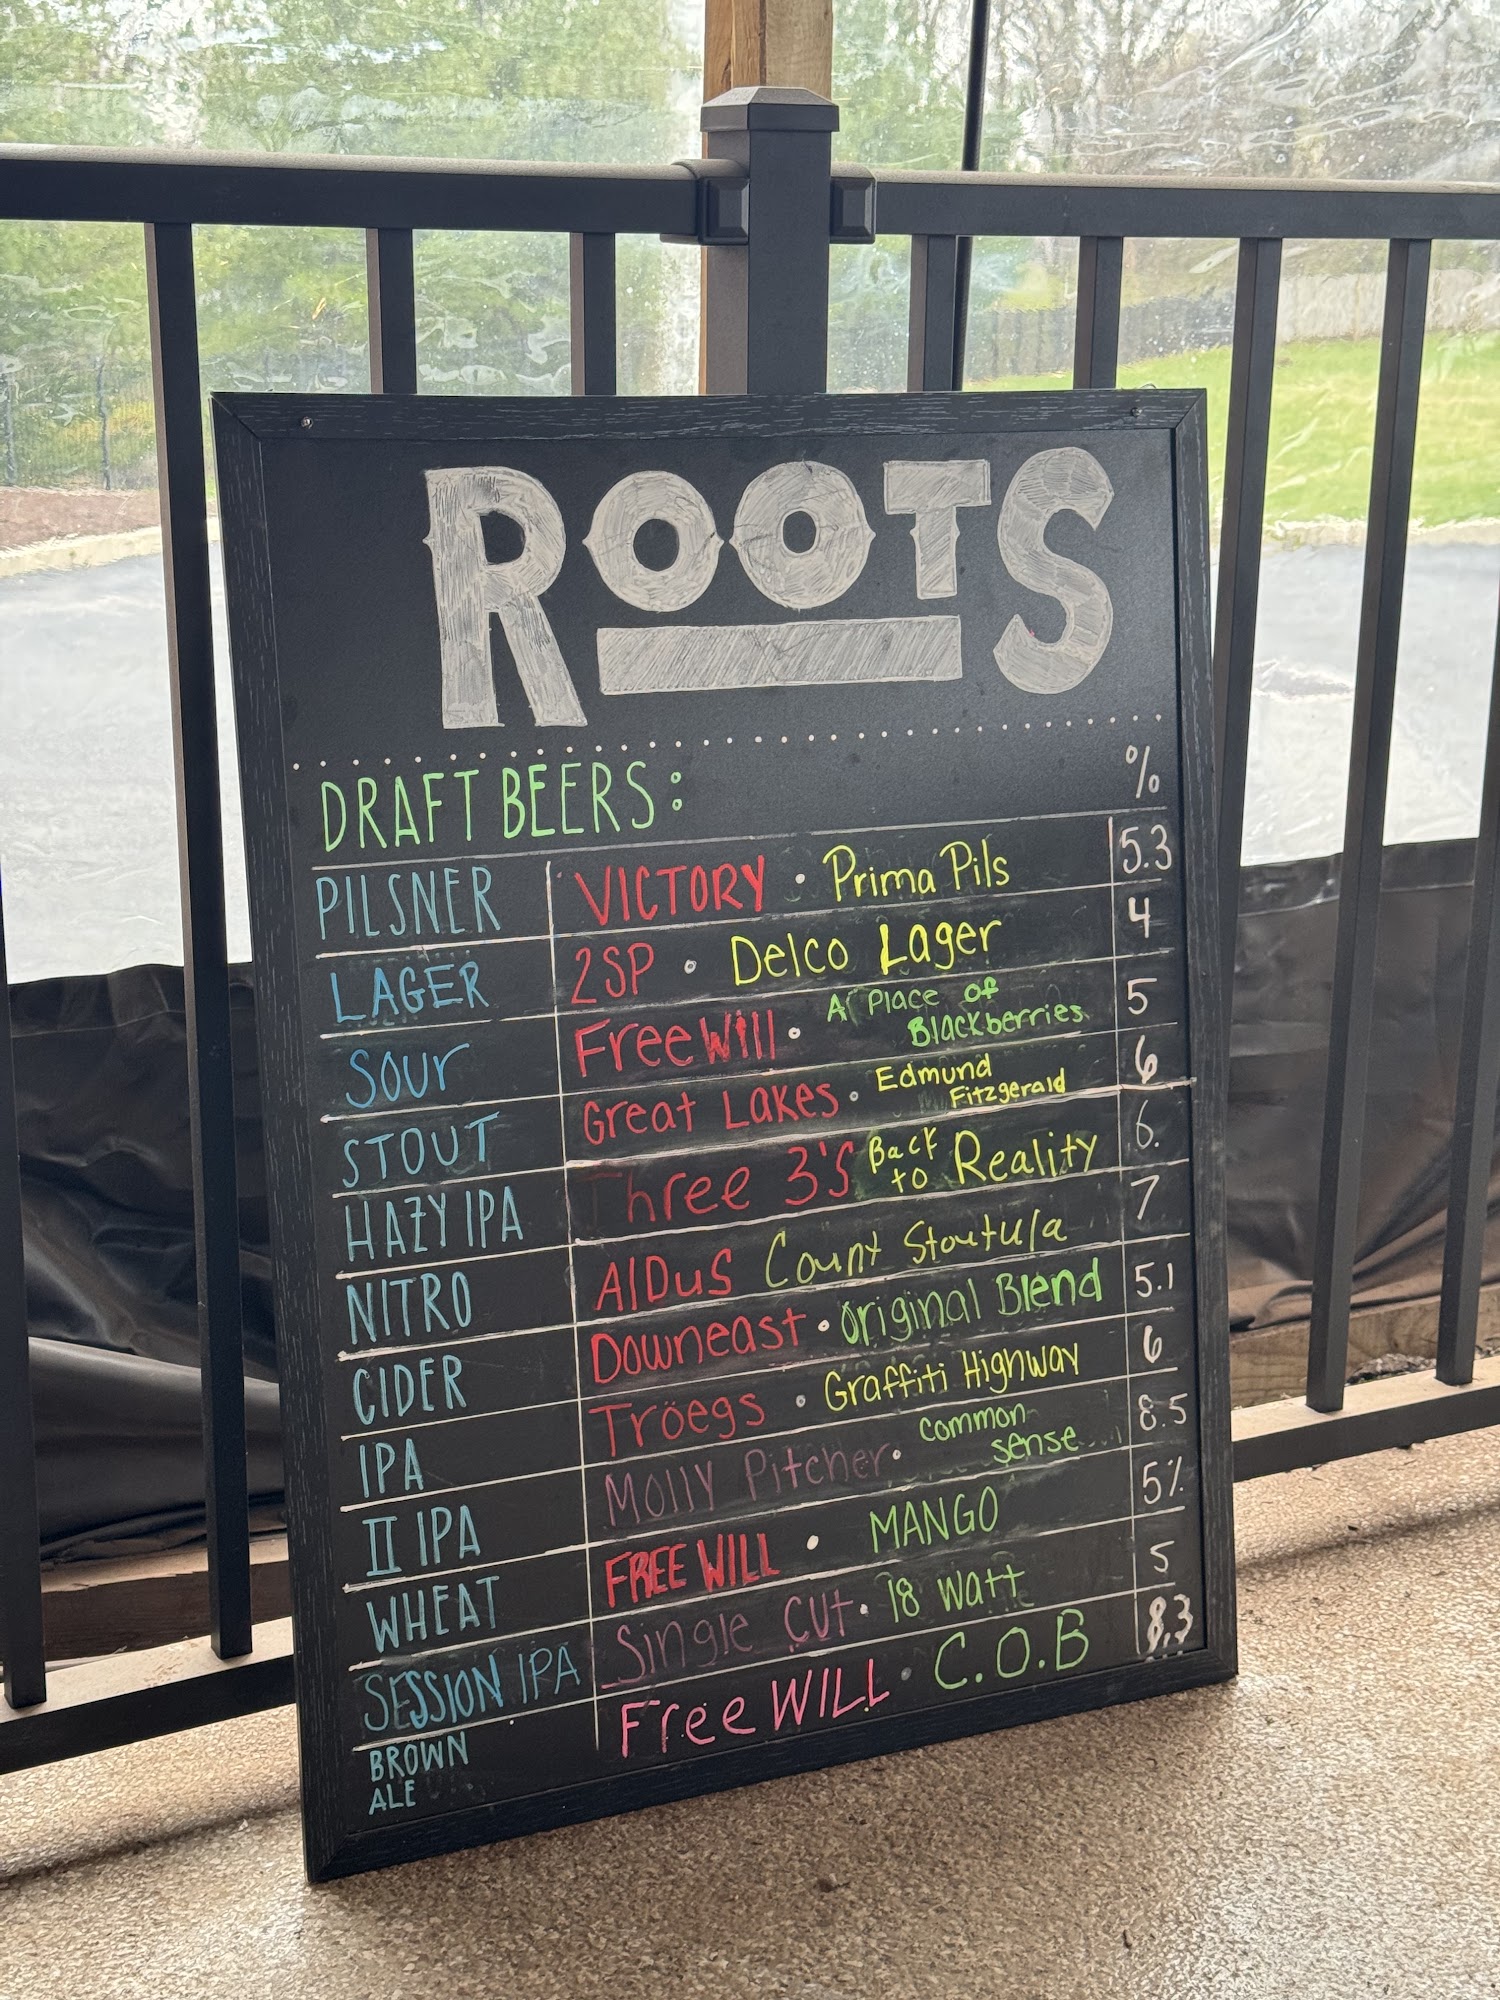 ROOTS
DRAFT BEERS: %
PILSNER VICTORY • Prima Pils 5.3
LAGER 2SP • Delco Lager 4
SOUR Free Will • A Place of Blackberries 5
STOUT Great Lakes • Edmund Fitzgerald 6
HAZY IPA Three 3'S Back to Reality 6.
NITRO AlDuS Count Stoutula 7
CIDER Downeast • Original Blend 5.1
IPA Tröegs • Graffiti Highway 6
II IPA Molly Pitcher • Common Sense 8.5
WHEAT FREE WILL • MANGO 5%
SESSION IPA Single CUT • 18 Watt 5
BROWN ALE Free WILL • C.O.B 8.3